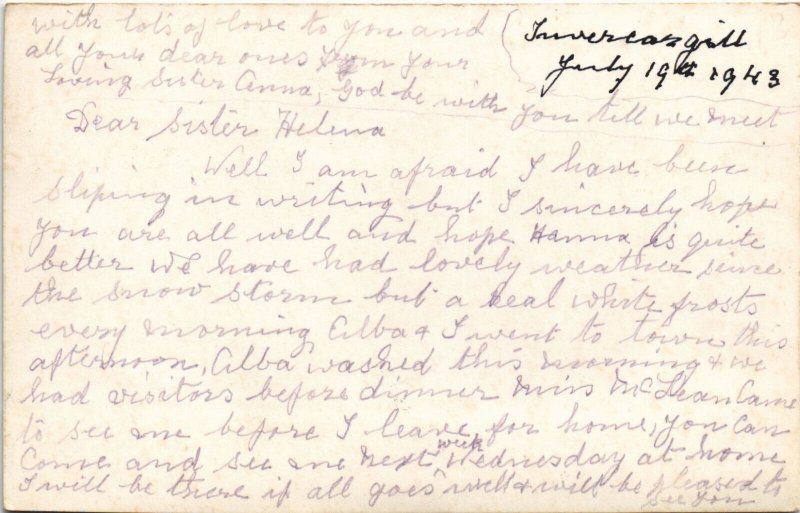 with lots of love to you and
all your dear ones from your
Loving Sister Anna, God be with you till we meet
Invercargill
July 19th 1943
Dear Sister Helena
Well I am afraid I have been
sliping in writing but I sincerely hope
you are all well and hope Hanna is quite
better We have had lovely weather since
the snow storm but a real white frosts
every morning, Alba & I went to town this
afternoon, Alba washed this morning & we
had visitors before dinner Miss McLean Came
to see me before I leave for home, you Can
Come and see me next week Wednesday at home
I will be there if all goes well & will be pleased to
see you